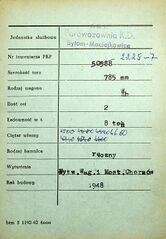 Parowozownia K.D.
Bytom-Maciejkowice
Jednostka służbowa
2228-7
Nr inwentarza PKP 50988
Szerokość toru 785 mm
Rodzaj wagonu
Ilość osi 2
Ładowność w t 8 ton
Ciężar własny 4660
Rodzaj hamulca ręczny
Wytwórnia Wytw.Wag.i Most.Chorzów
Rok budowy 1948